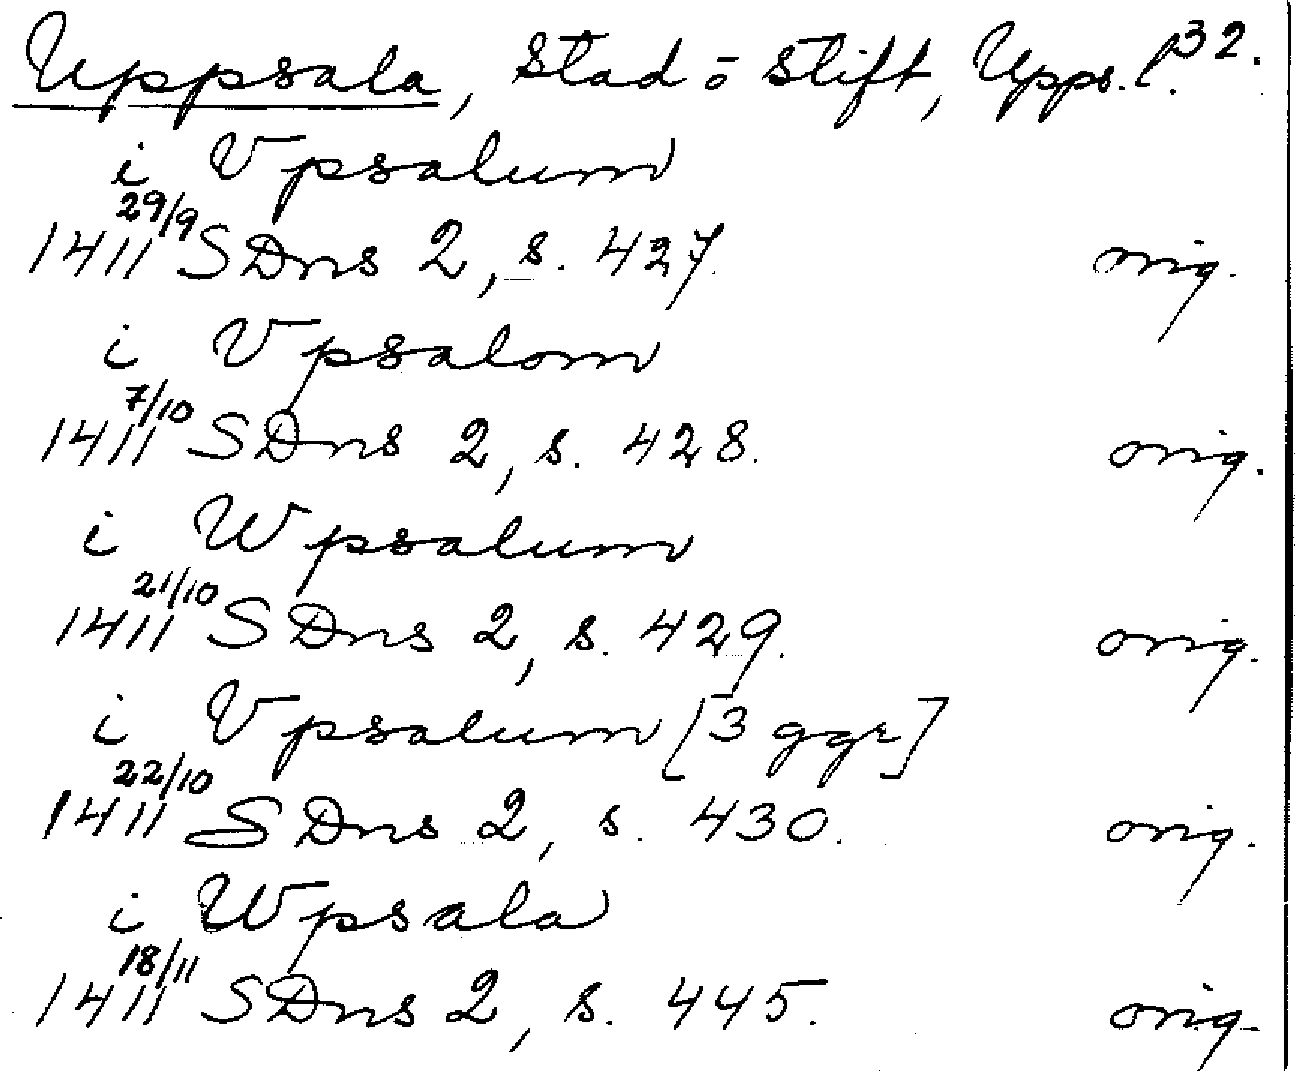 Uppsala, Stad o Stift, Upps. l. 32.
i Vpsalum
1411 29/9 SDns 2, s. 427 orig.
i Vpsalom
1411 7/10 SDns 2, s. 428. orig.
i Wpsalum
1411 21/10 SDns 2, s. 429. orig.
i Vpsalum [3 ggr]
1411 22/10 SDns 2, s. 430. orig.
i Wpsala
1411 18/11 SDns 2, s. 445. orig.